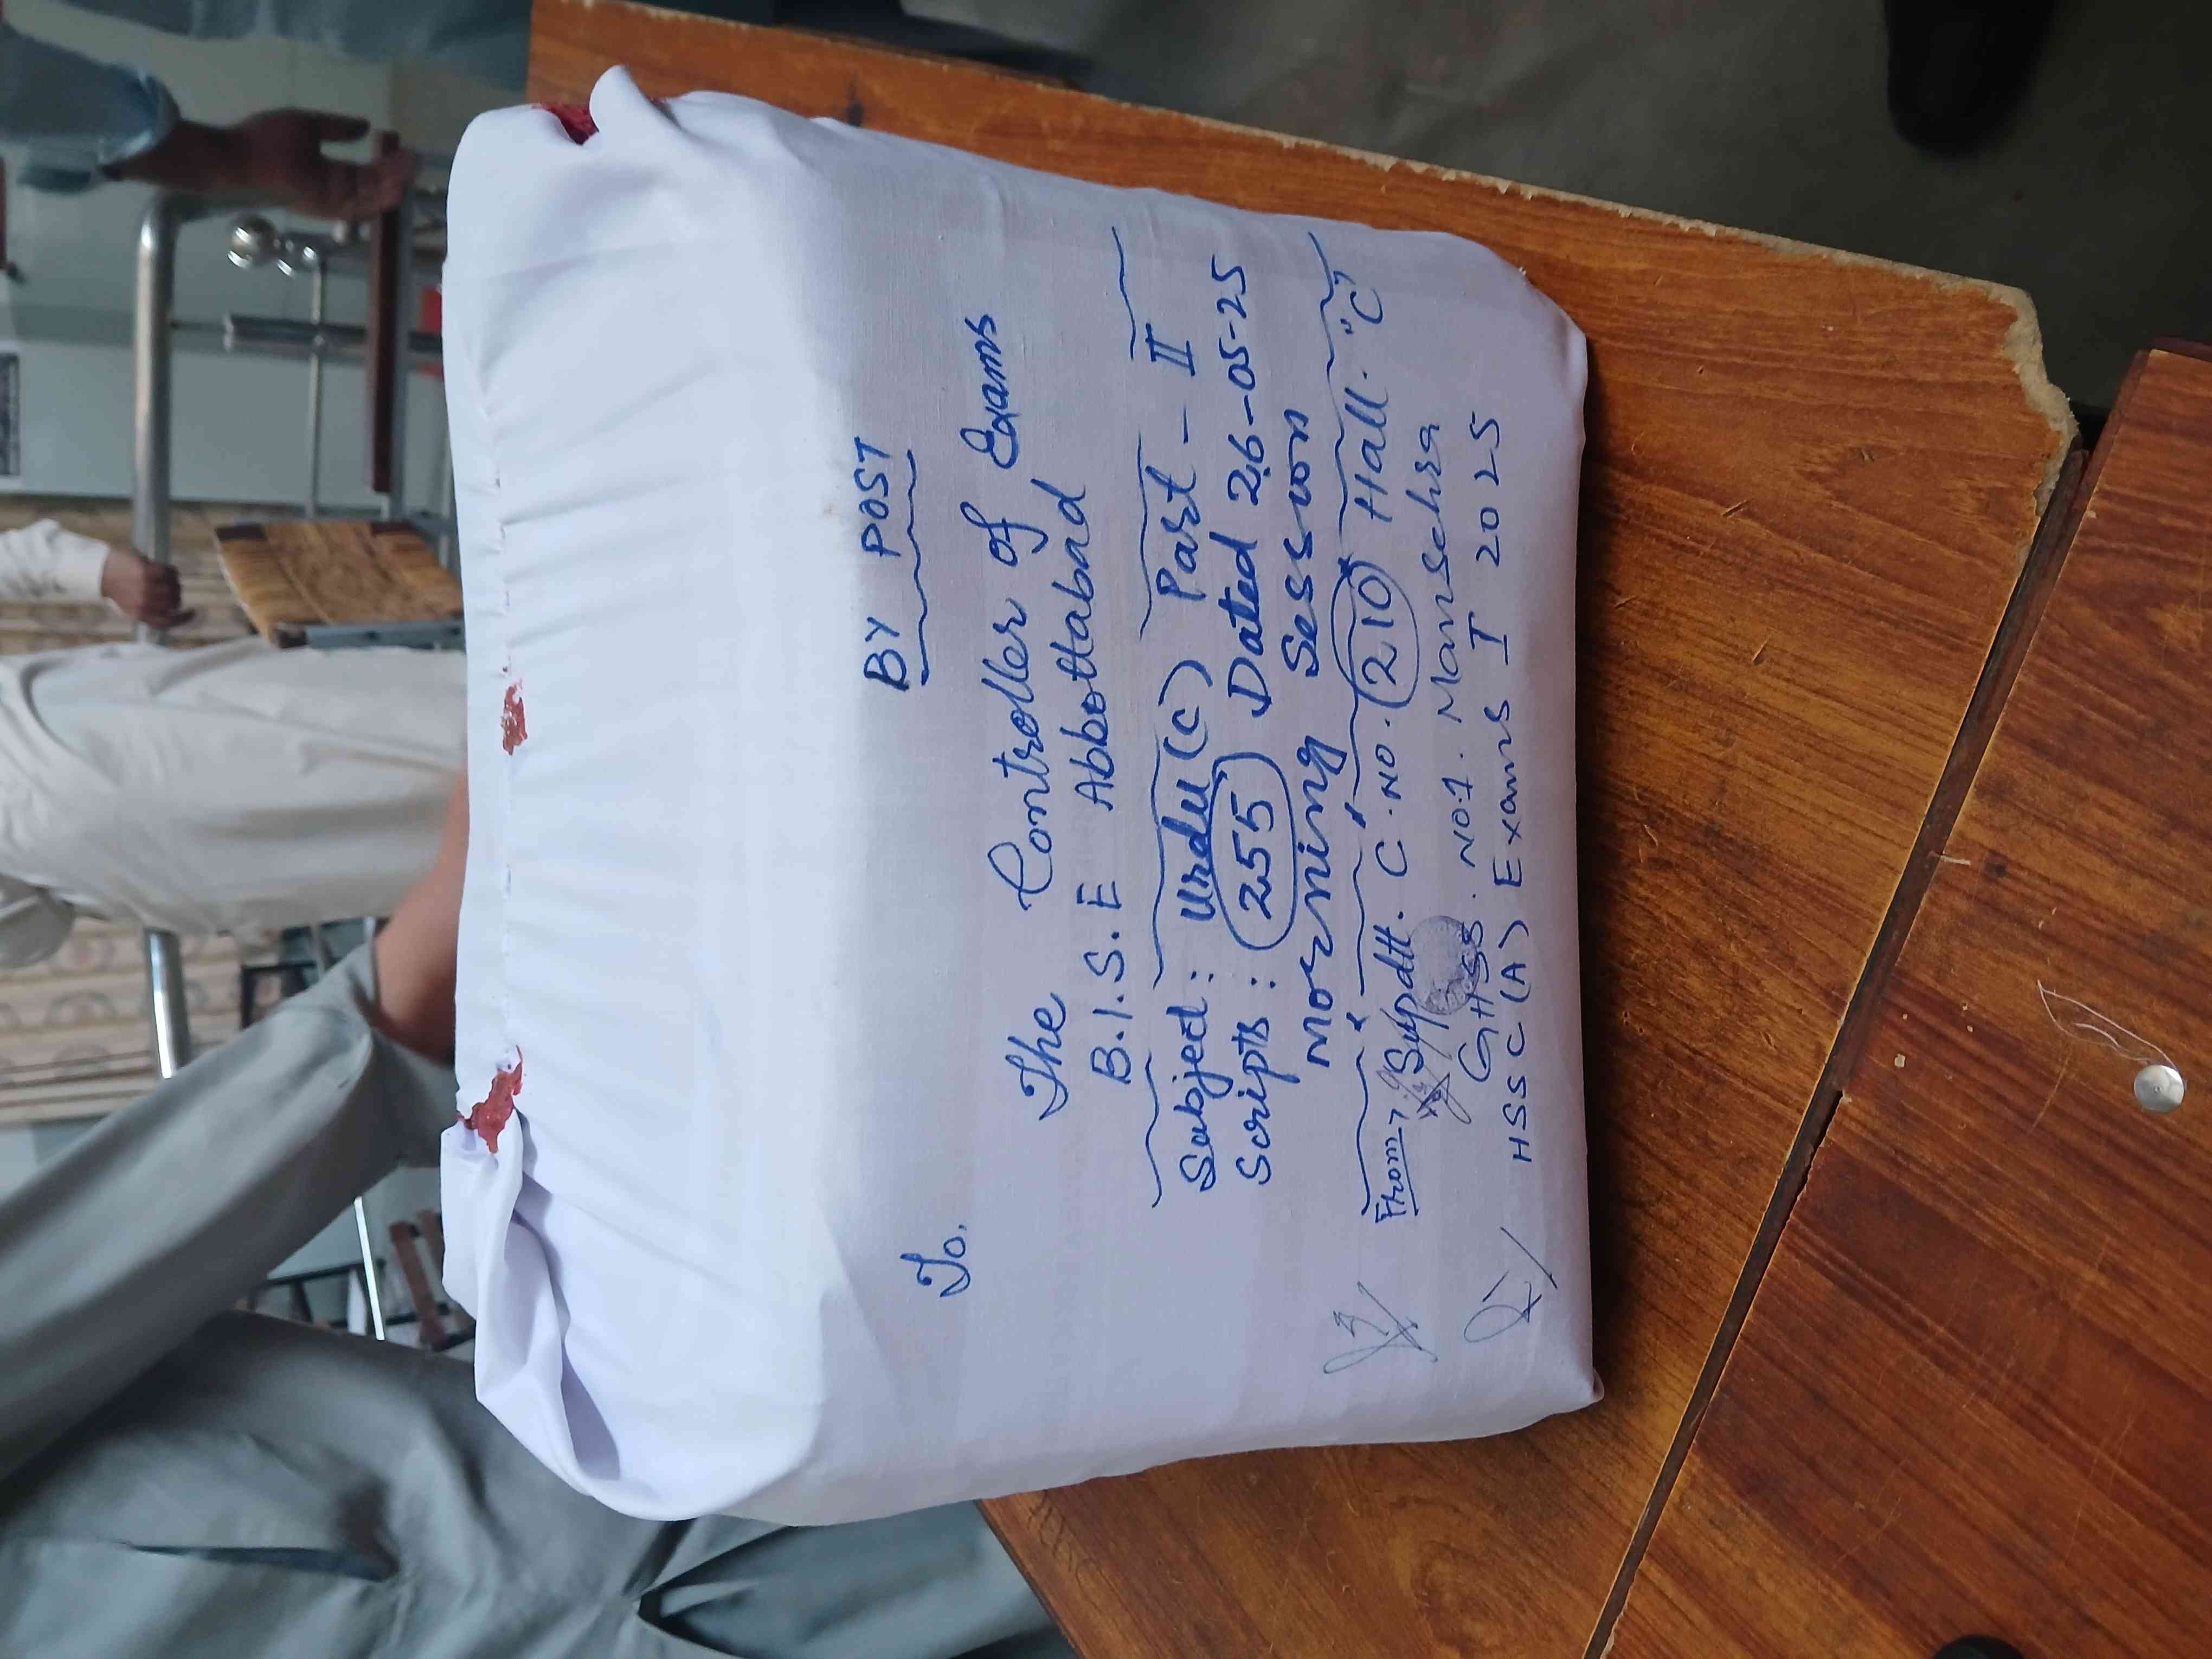 BY POST
To.
The Controller of Exams
B.I.S.E Abbottabad
Subject: Urdu (C) Part - II
Scripts: 255 Dated 26-05-25
Morning Session
From, Supdtt. C.NO. 210 Hall. "C"
GHSS. NO1. Mansehra
HSSC (A) Exams I 2025